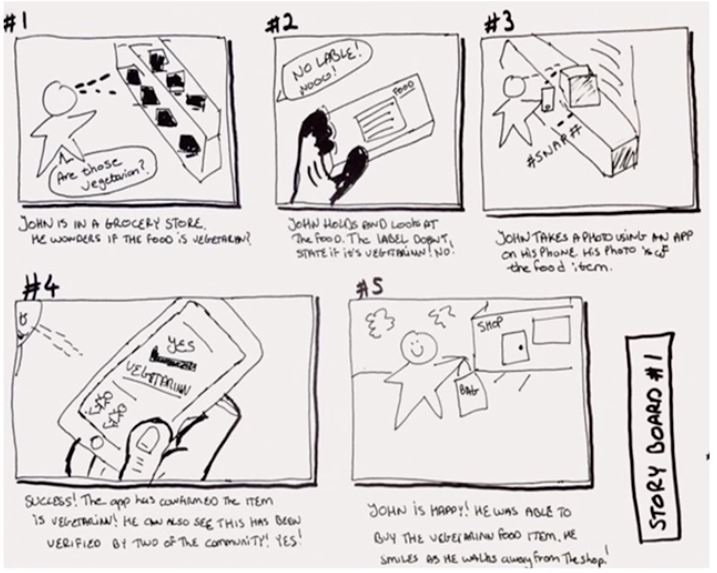 #1
Are those
vegetarian?
JOHN IS IN A GROCERY STORE.
HE WONDERS IF THE FOOD IS VEGETARIAN?
#2
NO LABLE!
NOOO!
FOOD
JOHN HOLDS AND LOOKS AT
THE FOOD. THE LABEL DOESN'T
STATE IF IT'S VEGETARIAN! NO!
#3
#SNAP#
JOHN TAKES A PHOTO USING AN APP
ON HIS PHONE. HIS PHOTO is of
the food item.
#4
YES
VEGETARIAN
SUCCESS! The app has confirmed the item
is VEGETARIAN! HE CAN ALSO SEE THIS HAS BEEN
VERIFIED BY TWO OF THE COMMUNITY! YES!
#5
SHOP
BAG
JOHN IS HAPPY! HE WAS ABLE TO
BUY THE VEGETARIAN FOOD ITEM. HE
SMILES AS HE WALKS away from The shop!
STORY BOARD #1